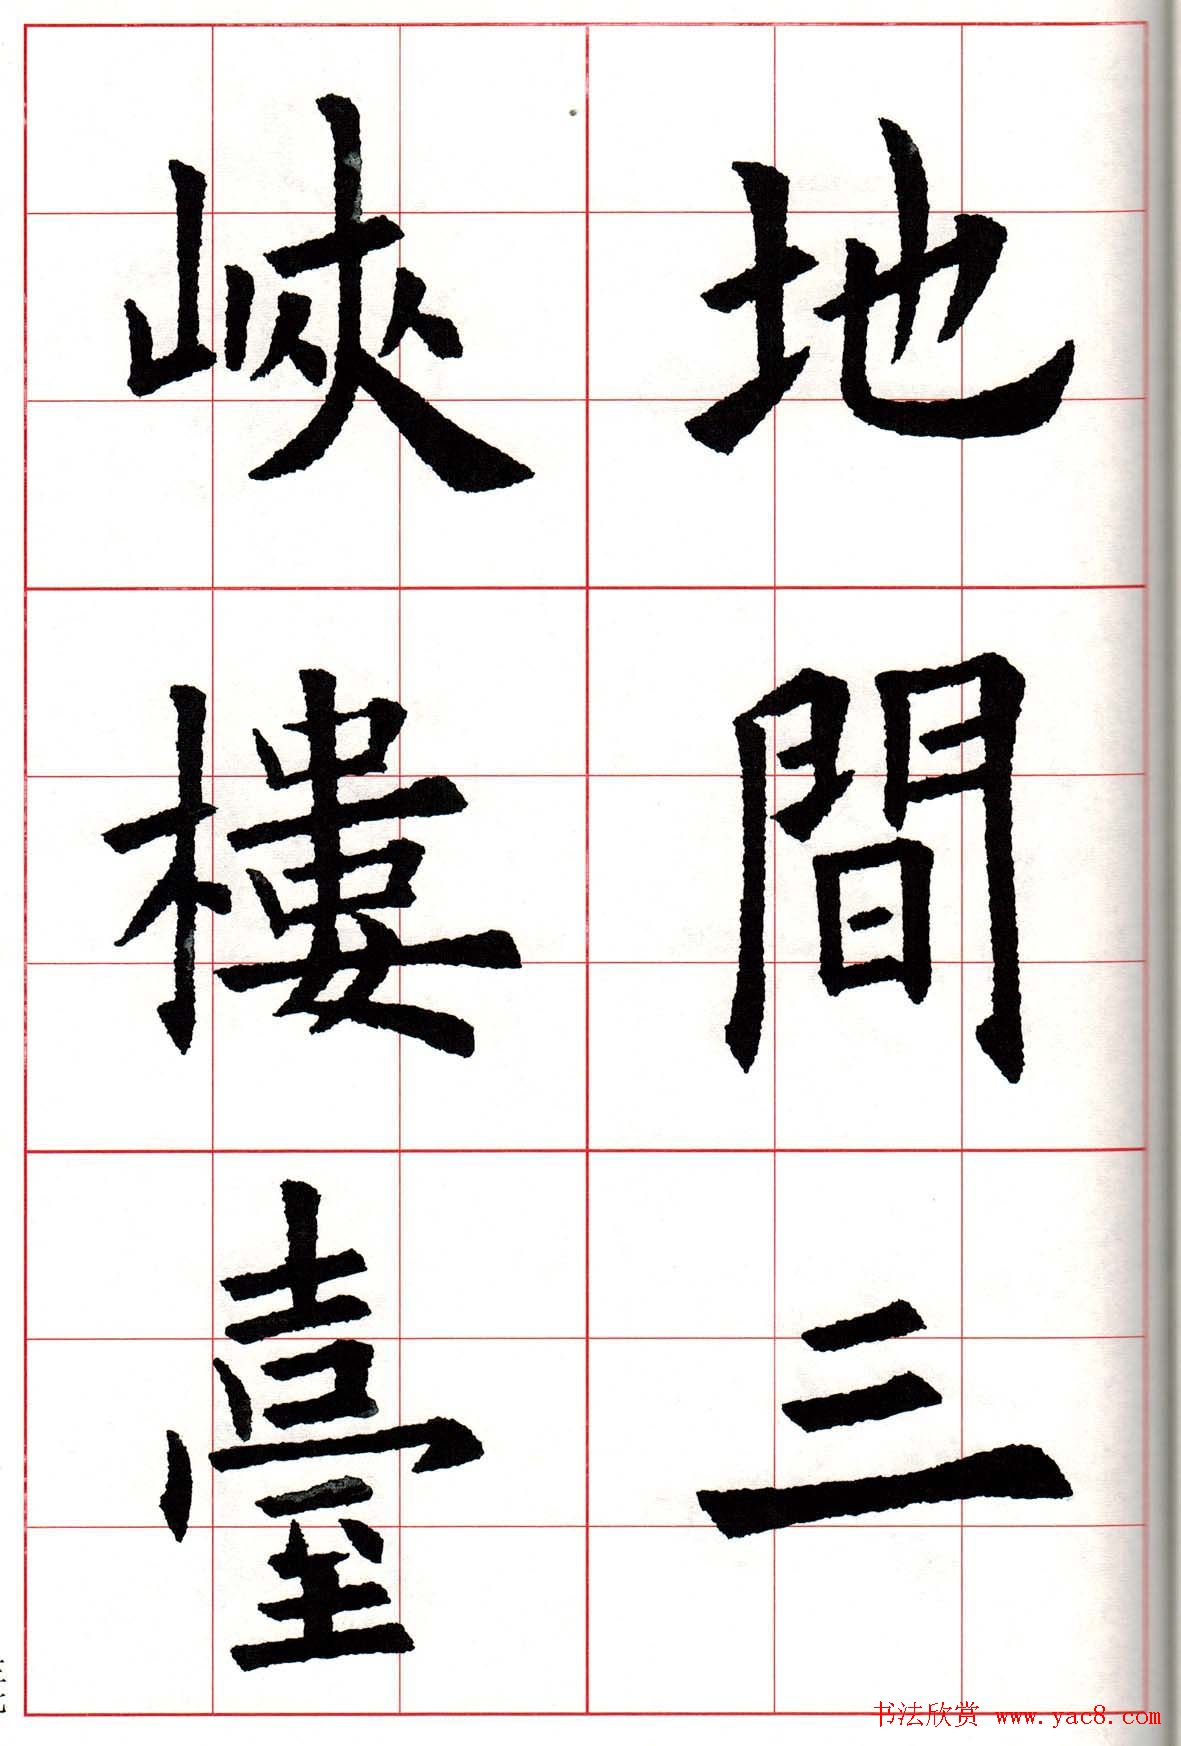 地間三
峽樓臺
书法欣赏 www.yac8.com